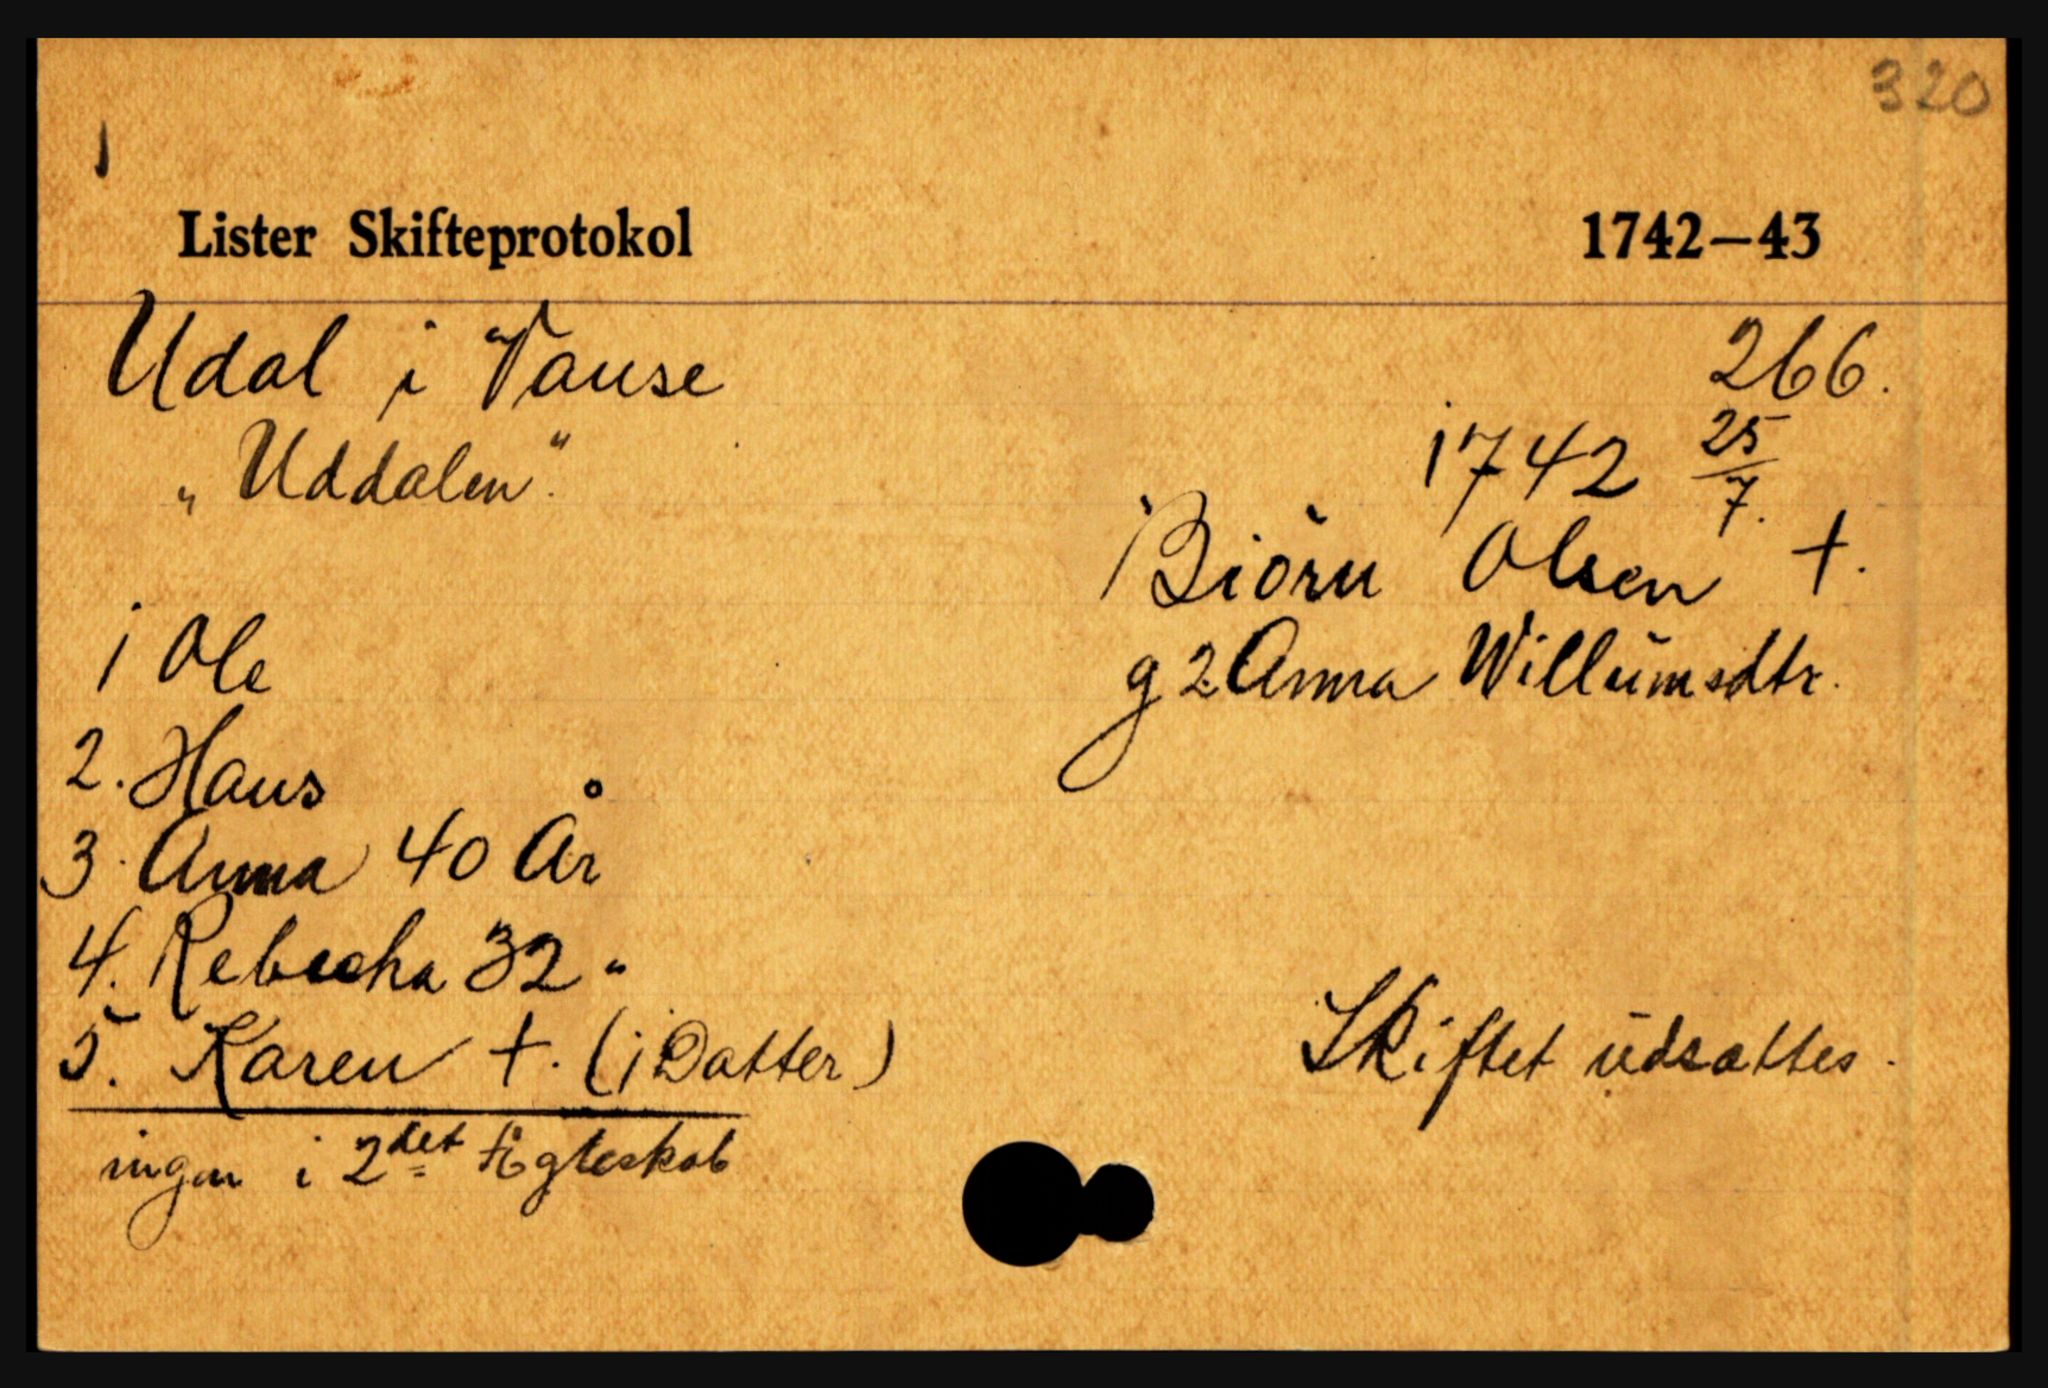 320
1
Lister Skifteprotokol 1742–43
Udal i Vanse 266.
„Uddalen“. 1742 25/7.
Biörn Olsen †.
1 Ole g 2 Anna Willumsdtr.
2. Hans
3. Anna 40 År
4. Rebecka 32 "
5. Karen †. (1 Datter) Skiftet udsattes.
ingen i 2det Ægteskab